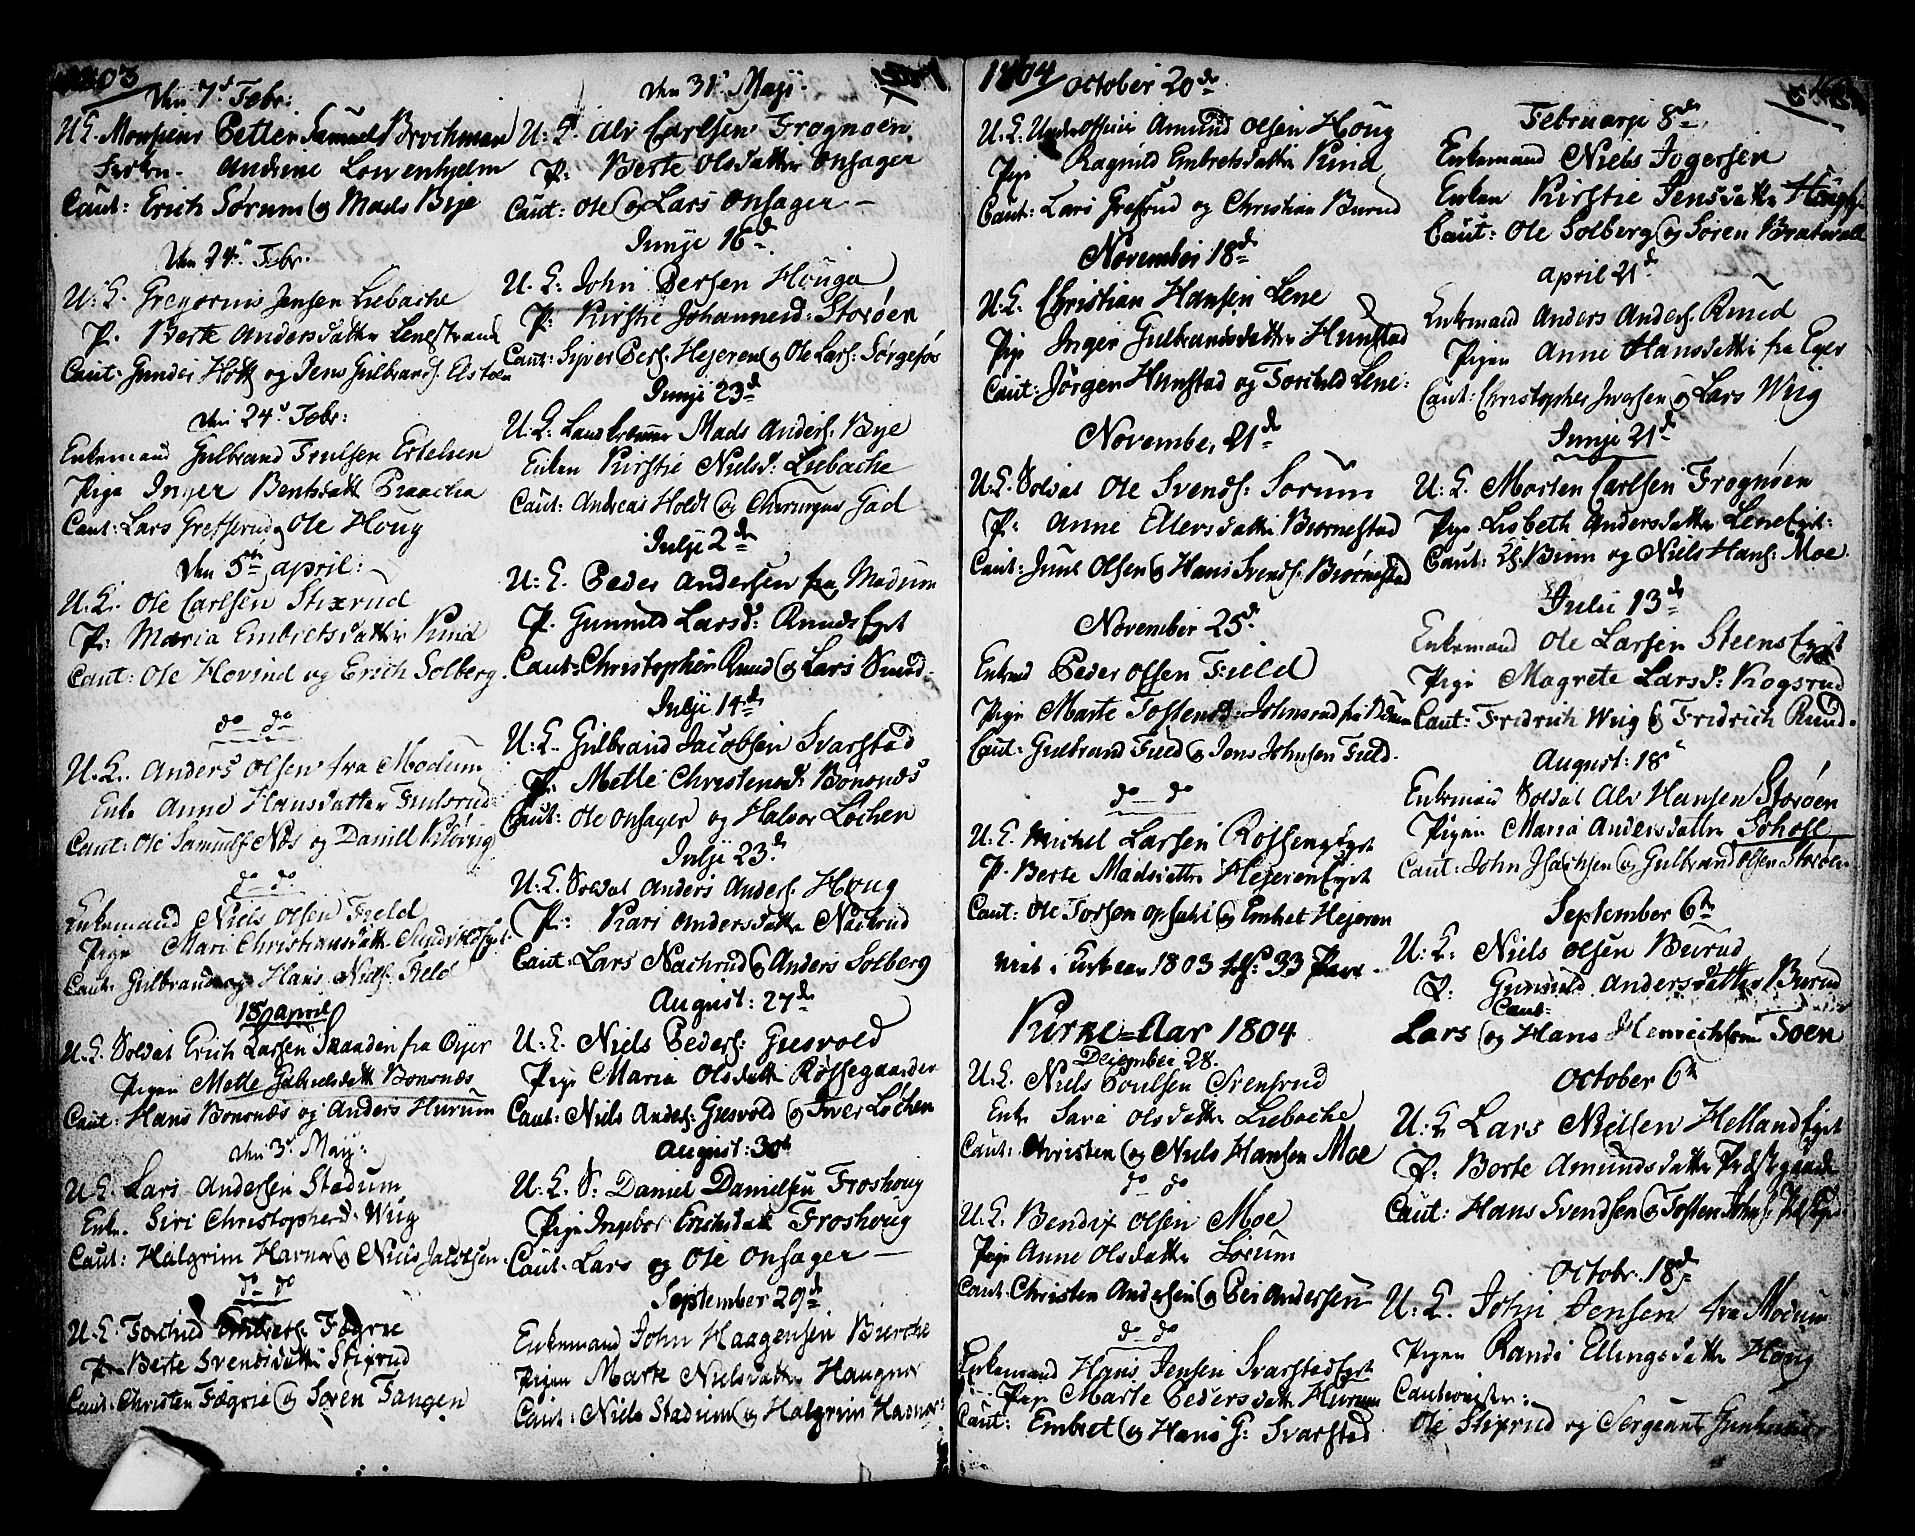 1803
Den 7d Febr:
U. C. Monsieur Petter Samuel Brochman
Frøken Andrine Lowenhjelm
Caut: Erich Sørum og Mads Bije
Den 24d Febr.
U: C. Gregorius Jensen Liebache
P. Berte Andersdatter Lenestrand
Caut: Gunder Holt og Jens Gulbrands.
Den 24d Febr:
Enkemand Gulbrand Erichsen
Pige Inger Bentsdatt Braacha
Caut: Lars Grefsrud og Ole Houg
Den 5te april:
U. C. Ole Carlsen Stixrud
P: Maria Embretsdatter Rud
Caut: Ole Hovind og Erich Solberg.
do do
U. C. Anders Olsen fra Modum
Enke Anne Hansdatter
Caut: Ole Samuels. Næs og Daniel
do do
Enkemand Niels Olsen Field
Pige Mari Christiansdatt
Caut: Gulbrand og Hans Niels. Field
18d april
U. C. Soldat Erich Larsen fra Øyer
Pigen Mette Gabrielsdatt Bonsnæs
Caut: Hans Bonsnæs og Anders Hurum
Den 3d May:
U. C. Lars Andersen Stadum
Enke Siri Christophersd. Wiig
Caut: Halgrim Havnor og Niels Jacobsen.
do do
U. C. Torchild Embrets. Fægrie
P. Berte Svendsdatter Stixrud
Caut: Christen Fægrie og Søren Tangen
Den 31d Maji.
U: C. Alv Carlsen Frognøen
P: Berte Olsdatter Onsager
Caut: Ole og Lars Onsager
Junji 16d
U. C. John Persen Houga
P: Kirstie Johannesd: Storøen
Caut: Siver Pers. Hejeren og Ole Lars. Sørgefos
Junji 23d
U. C. Landkræmmer Mads Anders. Bije
Enken Kirstie Nielsd: Liebache
Caut: Andreas Holdt og Chirurgus Gad
Julji 2de
U: C. Peder Andersen fra Modum
P. Gunild Larsd: Ruuds Eyet
Caut: Christopher Ruud og Lars Ruud.
Julji 14de
U: C. Gulbrand Jacobsen Svarstad
P: Mette Christensd: Bonsnæs
Caut: Ole Onsager og Halvor Løchen
Julji 23d
U. C. Soldat Anders Anders. Houg
P: Kari Andersdatter Nachrud
Caut: Lars Nachrud og Anders Solberg
August: 27de
U: C. Niels Peders: Gresvold
Pige Maria Olsdatt Røssegaarden
Caut: Niels Anders: Gresvold og Iver Løchen
August: 30te
U: C. S: Daniel Danielsen Froshoug
Pige Ingebor Erichsdatt Froshoug
Caut. Lars og Ole Onsager
September 29de
Enkemand John Haagensen Bierche
Pigen Marte Nielsdatter Haugner
Caut: Niels Stadum og Halgrim Havnor
1804
October 20de
U. C. Underofficeer Amund Olsen Houg
Pige Ragnild Embretsdatter Rud
Caut: Lars Grefsrud og Christian Burud
November 18de
U. C. Christian Hansen Lene
Pige Inger Gulbrandsdatter Hunstad
Caut: Jørgen Hunstad og Torchild Lene:
November 21de
U. C. Soldat Ole Svends. Sorum
P: Anne Ellersdatter Biørnestad
Caut: Juul Olsen og Hans Svends. Biørnestad
November 25d.
Enkemd Peder Olsen Field
Pige Marte Tostensd. Johnsrud fra
Caut: Gulbrand Field og Jens Johnsen Field.
do do
U. C. Michel Larsen
P. Berte Madsdatter Hejeren Eyet
Caut: Ole Torsen Opsahl og Embret Hejeren
Viet i Kirkeaar 1803 33 Par
Kirke=Aar 1804
December 28.
U. C. Niels Poulsen Svensrud
Enke Sara Olsdatter Liebache
Caut: Christen og Niels Hansen Moe
do do
U. C. Bendix Olsen Moe
Pige Anne Olsdatter Sorum
Caut: Christen Andersen og Peer Andersen
do do
Enkemand Hans Jensen Svarstad Eyet
Pige Marte Pedersdatter Hurum
Caut: Embret og Hans G: Svarstad
Februarji 8de
Enkemand Niels Jogersen
Enken Kirstie Jensdatter
Caut: Ole Solberg og Søren Bratwall
April 21d
Enkemand Anders Anders. Ruud
Pigen Anne Hansdatter fra Eger
Caut: Christopher Iversen og Lars Wiig
Junji 21d
U: C. Morten Carlsen Frognøen
Pige Lisbeth Andersdatter Lene Eyet:
Caut: Biun og Niels Hans: Moe.
Julii 13de
Enkemand Ole Larsen Steens Eyet
Pige Magrete Larsd: Rogsrud
Caut: Fridrich Wiig og Fridrich Ruud.
August: 18d
Enkemand Soldat Alv Hansen Storøen
Pigen Maria Andersdatter
Caut: John Isachsen og Gulbrand Olsen Storøen
September 6te
U: C. Niels Olsen Beirud
P: Gunnild Andersdatter Beirud
Caut:
Lars og Hans Henrichsen Soen
October 6te
U: C Lars Nielsen Helland Eyet
P: Berte Amundsdatter Præstegaard
Caut: Hans Svendsen og Tosten Johns.
Octobr. 18de
U: C. John Jensen fra Modum
Pigen Randi Ellingsdatter Houg
Cautionister:
Ole Stixrud og Sergeant